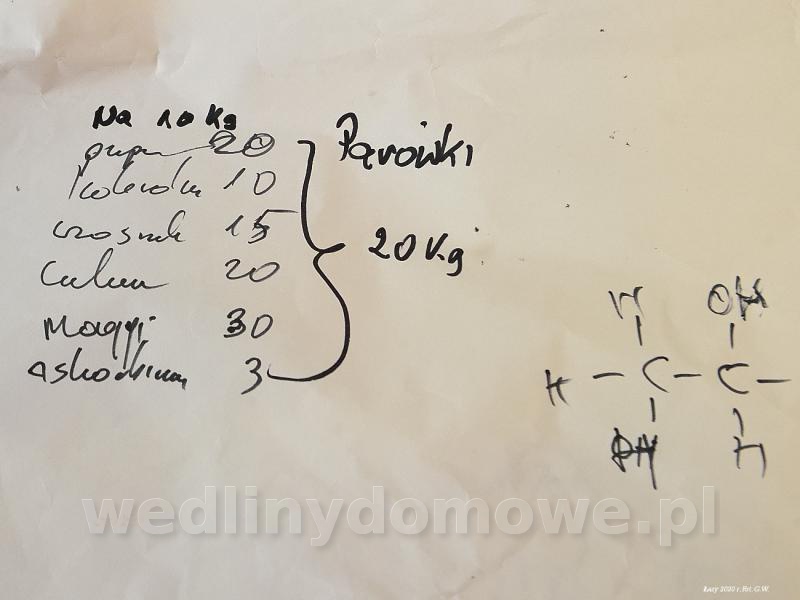 Na 10 Kg
pieprz 20
kolendra 10
czosnek 15
Cukier 20
Maggi 30
askorbinian 3
Parówki
20 Kg
H OH
H - C - C -
OH H
wedlinydomowe.pl
Łazy 2020 r. Fot. G.W.